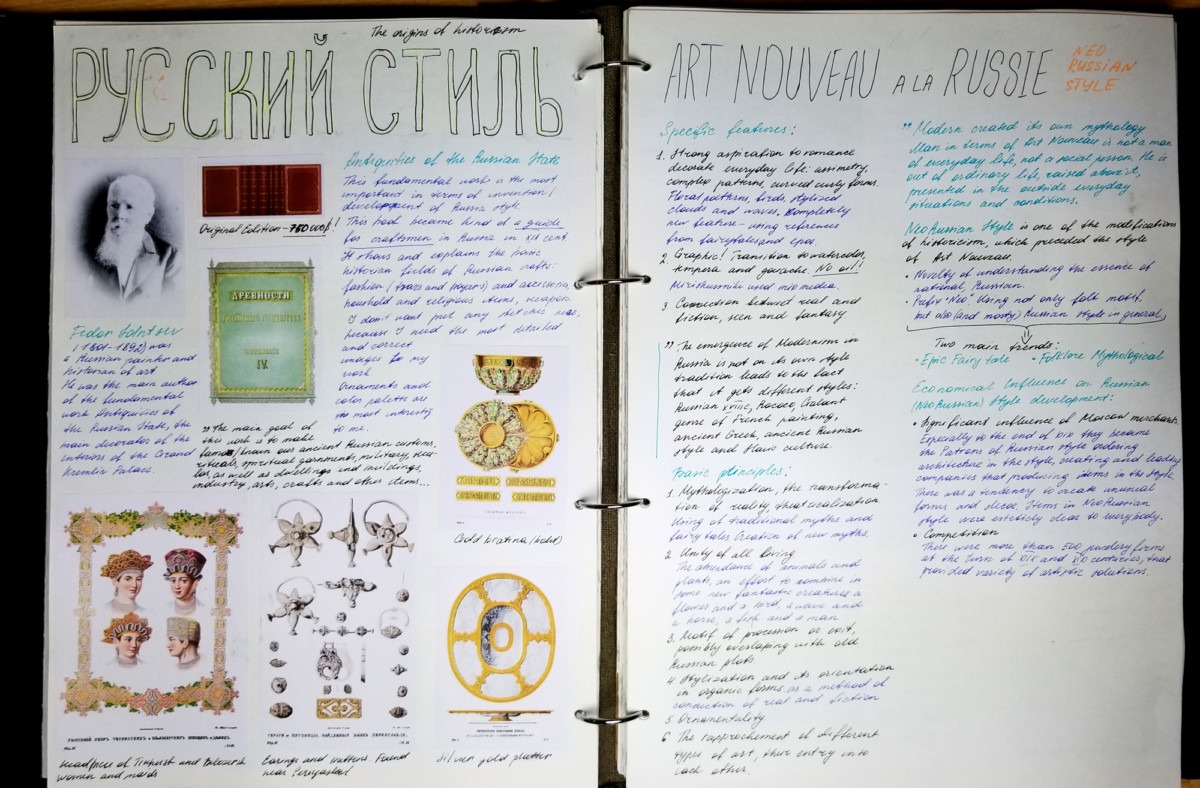 The origins of historism
РУССКИЙ СТИЛЬ
Original Edition - 750 000$!
ДРЕВНОСТИ
IV.
Fedor Solntsev
(1801-1892) was
a Russian painter and
historian of art
He was the main author
of the fundamental
work Antiquities of
the Russian State, the
main decorator of the
interiors of the Grand
Kremlin Palace.
Antiquities of the Russian State
This fundamental work is the most
important in terms of invention/
development of Russia style
This book became kind of a guide
for craftsmen in Russia in XIX cent.
It shows and explains the
historian fields of Russian crafts:
fashion and accessories,
household and religious items, weapon
I don't want put any sketches here,
because I need the most detailed
and correct
images to my
work
Ornaments and
color palette are
the most interesting
to me.
" The main goal of
this work is to make
known our ancient Russian customs,
rituals, spiritual garments, military,
as well as dwellings and buildings,
industry, arts, crafts and other items...
Gold bratina
Headpiece of and Belozersk
women and maids
СЕРЬГИ И ПУГОВИЦЫ НАЙДЕННЫЯ БЛИЗЬ ПЕРЕЯСЛАВЛЯ.
Earings and buttons Found
near
Silver gold platter
ART NOUVEAU A LA RUSSIE
NEO
RUSSIAN
STYLE
Specific features:
1. Strong aspiration to romance
decorate everyday life: assimetry,
complex patterns, curved curly forms.
Floral patterns, birds, stylized
clouds and waves. Completely
new feature - using references
from fairytales and epos.
2. Graphic! Transition to watercolor,
tempera and gouache. No oil!
Miriskusniki used mix media.
3 Connection between real and
fiction, seen and fantasy
" The emergence of Modernism in
Russia is not on its own style
tradition leads to the fact
that it gets different styles:
Russian XVIIIc, Rococo, Galant
genre of French painting,
ancient Greek, ancient Russian
style and Slavic culture.
Basic plinciples:
1. Mythologization, the transforma-
tion of reality, theatricalization
Using of traditional myths and
fairytales. Creation of new myths.
2. Unity of all living
The abundance of animals and
plants, an effort to combine in
some new fantastic creatures a
flower and a bird, a wave and
a horse, a fish and a man
3. Motif of procession or exit,
possibly overlaping with old
Russian plots
4 Stylization and its orientation
in organic forms as a method of
connection of real and fiction
5 Ornamentality
6 The rapprochement of different
types of art, their entry into
each other.
" Modern created its own mythology
Man in terms of Art Nouveau is not a man
of everyday life, not a social person. He is
out of ordinary life, raised above it,
presented in the outside everyday
situations and conditions.
NeoRussian Style is one of the modifications
of historicism, which preceded the style
of Art Nouveau.
• Novelty of understanding the essence of
national, Russian.
• Prefix "Neo". Using not only folk motif,
but also (and mostly) Russian style in general,
Two main trends:
• Epic Fairytale • Folklore Mythological
Economical Influence on Russian
(NeoRussian) style development:
• Significant influence of Moscow merchants.
Especially to the end of XIX they became
the Patrons of Russian style ordering
architecture in the style, creating and leading
companies that producing items in the style.
There was a tendency to create unusual
forms and decor. Items in NeoRussian
style were clear to everybody.
• Competition
There were more than 500 jewelery firms
at the turn of XIX and XX centuries, that
provided variety of artistic solutions.